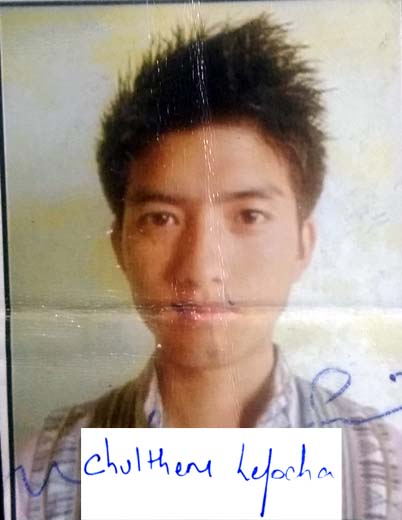 Chulthem Lepcha